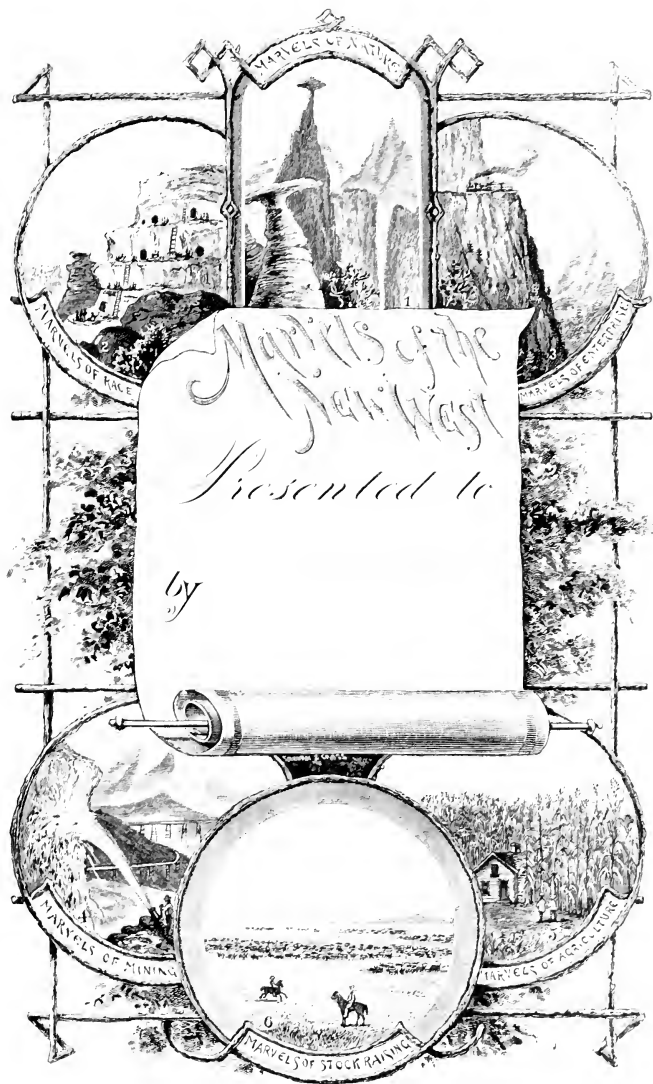 MARVELS OF NATURE
1
2
MARVELS OF RACE
3
MARVELS OF ENTERPRISE
Marvels of the
New West
Presented to
by
MARVELS OF MINING
5
MARVELS OF AGRICULTURE
6
MARVELS OF STOCK RAISING